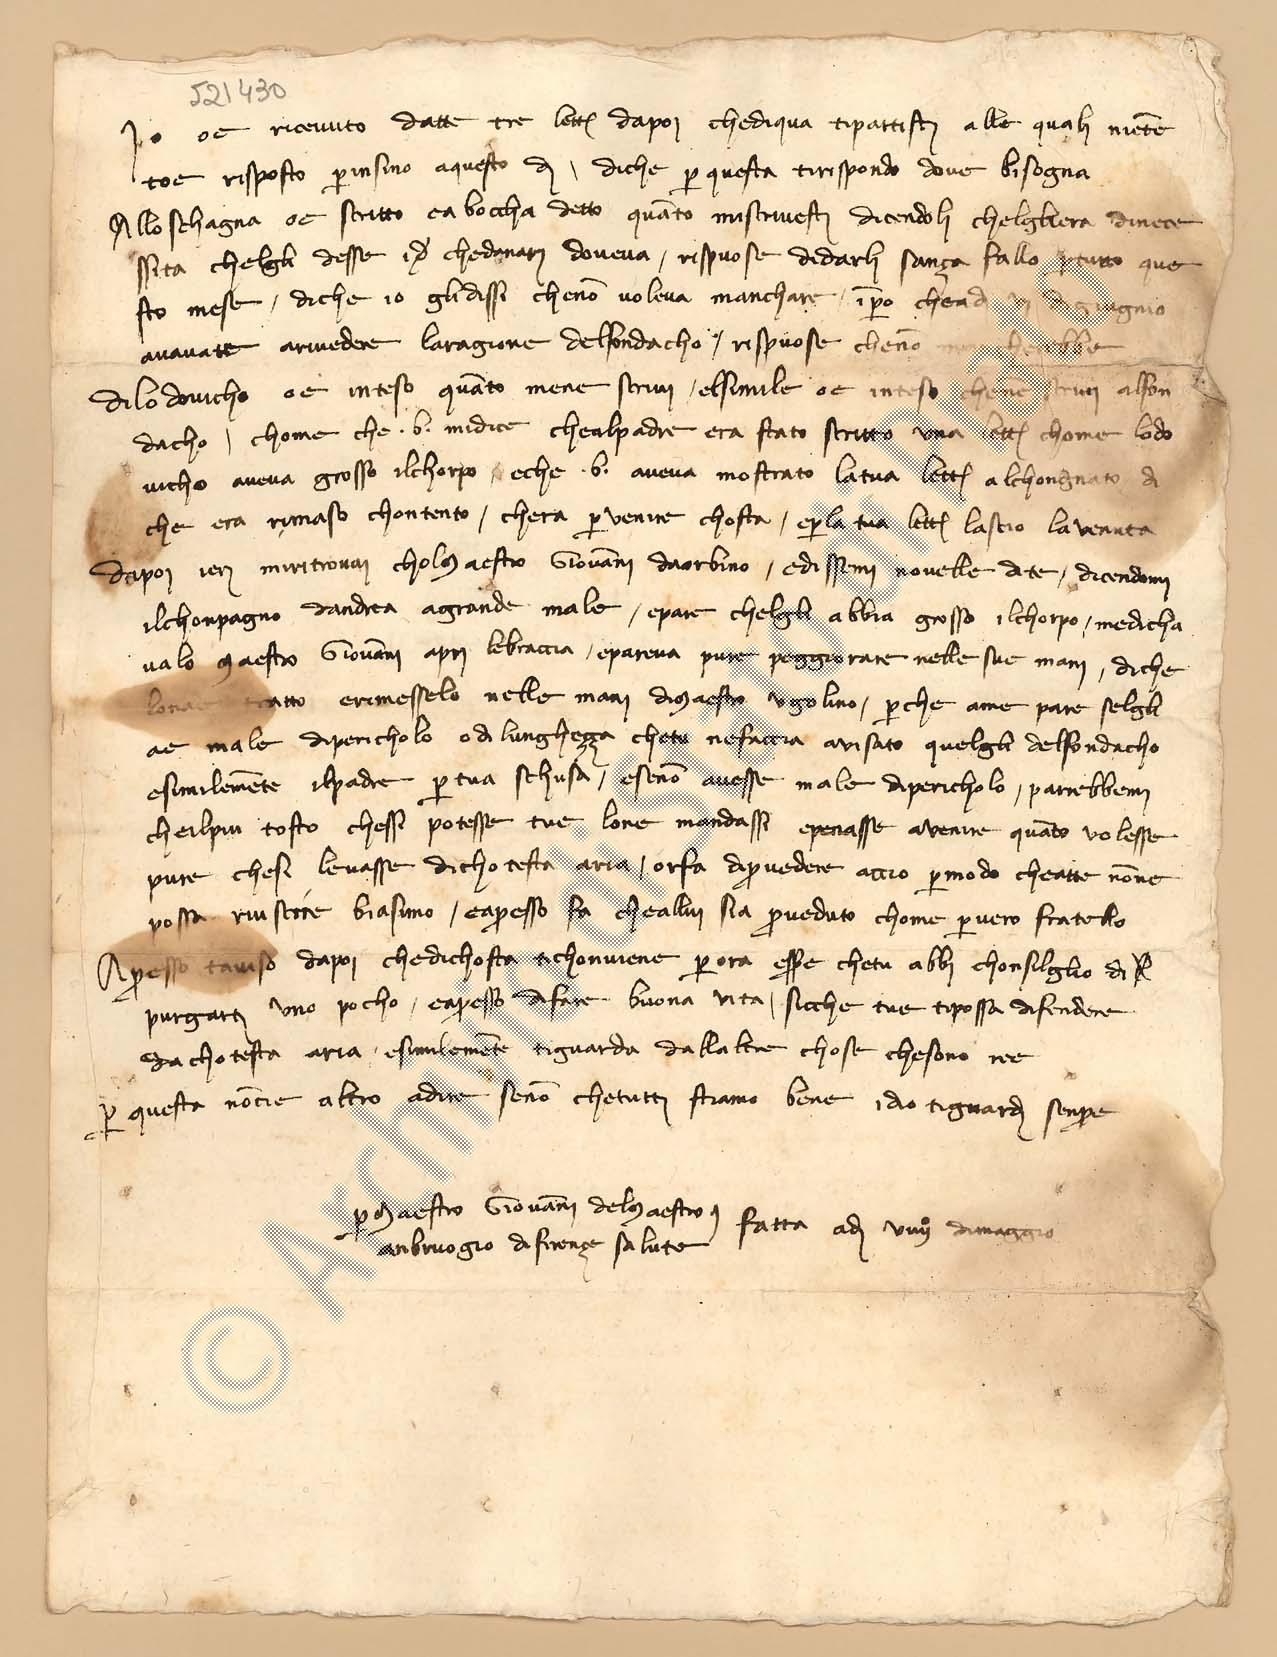 521430
Io oe ricevuto datte tre lett dapoi chediqua tipartisti alle quali niēte
toe risposto p̄insino aquesto dj / diche p̄ questa tirispondo dove bisogna
Allo schagna oe scritto ea boccha detto quāto miscrivesti dicendoli chelglera dinece
ssita chelgli desse chedanari doveva / rispuose didarli sança fallo p tutto que
sto mese / diche io glidissi chenō voleva manchare / ip̄o chead di giugnio
avavate arivedere laragione delfondacho / rispuose chenō mancherebbe
dilodovicho oe inteso quāto mene scrivi / elsimile oe inteso chene scrivi alfon
dacho / chome che .b. midice chealpadre era stato scritto una lett chome lodo
vicho aveva grosso ilchorpo / eche .b. aveva mostrato latua lett alchongnato di
che era rimaso chontento / chera p̄ venire chosta / ep̄la tua lett lascio lavenuta
dapoi ieri miritrovai cholmaestro Giovāni daorbino / edissemi novelle dite / dicendomi
ilchonpagno dandrea agrande male / epare chelgli abbia grosso ilchorpo / medicha
valo maestro Giovāni apri lebraccia / epareva pure peggiorare nelle sue mani / diche
lonae tratto erimesselo nelle mani dimaestro ugolino / p̄che ame pare selgli
ae male dipericholo odi lunghezza chetu nefaccia avisato quelgli delfondacho
esimilemēte ilpadre p̄ tua schusa / esenō avesse male dipericholo / parrebbemi
cheilpiu tosto chessi potesse tue lone mandassi epenasse avenire quāto volesse
pure chesi levasse dichotesta aria / orfa dip̄vedere accio p̄modo cheatte nōne
possa riuscire biasimo / eap̄esso fa cheallui sia p̄veduto chome p̄ vero fratello
Ap̄esso taviso dapoi chedichosta tichonviene p̄ ora esse chetu abbi chonsilglio di
purgarti uno pocho / eap̄esso difare buona vita / sicche tue tipossa difendere
dachotesta aria / esimilemēte tiguarda dallaltre chose chesono ree
p̄ questa nōcie altro adire senō chetutti stiamo bene idio tiguardi senp̄e
p̄ maestro Giovāni delmaestro
anbruogio difirençe salute
fatta adj viiij dimaggio
© Archivio di Stato di Prato